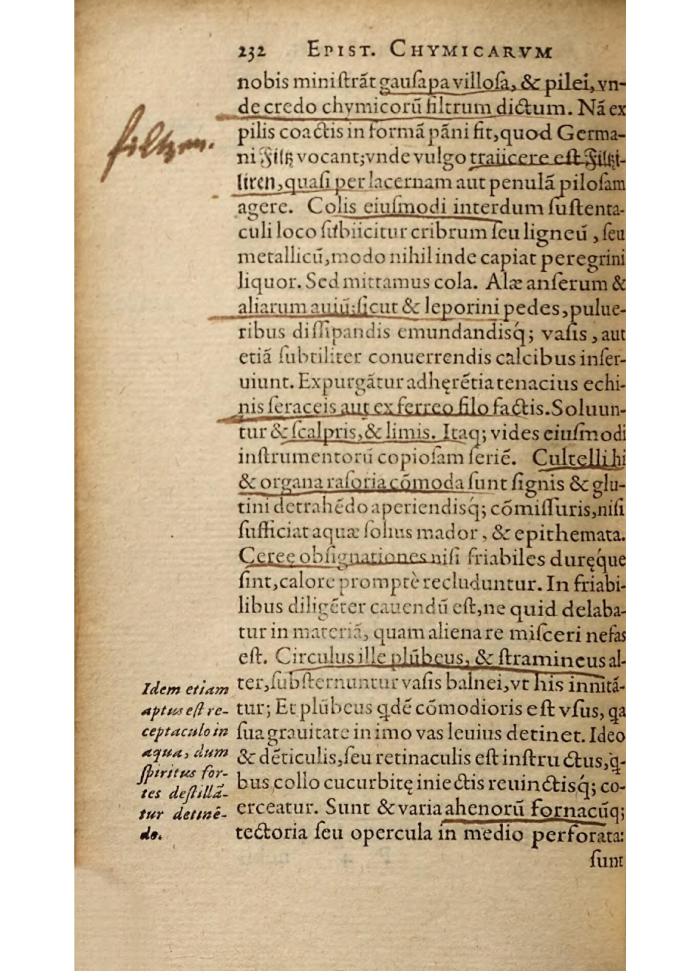 232 EPIST. CHYMICARVM
nobis miniſtrãt gauſapa villoſa, & pilei, vn-
de credo chymicorũ filtrum dictum. Nã ex
pilis coactis in formã pãni fit, quod Germa-
ni Filtz vocant; vnde vulgo traiicere eſt Filtzi-
liren, quaſi per lacernam aut penulã piloſam
agere. Colis eiuſmodi interdum ſuſtenta-
culi loco ſubiicitur cribrum ſeu ligneũ, ſeu
metallicũ, modo nihil inde capiat peregrini
liquor. Sed mittamus cola. Alæ anſerum &
aliarum auiũ; ſicut & leporini pedes, pulue-
ribus diſſipandis emundandisq́; vaſis, aut
etiã ſubtiliter conuerrendis calcibus inſer-
uiunt. Expurgãtur adhęrẽtia tenacius echi-
nis ſeraceis aut ex ferreo filo factis. Soluun-
tur & ſcalpris, & limis. Itaq; vides eiuſmodi
inſtrumentorũ copioſam ſeriẽ. Cultelli hi
& organa raſoria cõmoda ſunt ſignis & glu-
tini detrahẽdo aperiendisq́; cõmiſſuris, niſi
ſufficiat aquæ ſolius mador, & epithemata.
Cereę obſignationes niſi friabiles duręque
ſint, calore promptè recluduntur. In friabi-
libus diligẽter cauendũ eſt, ne quid delaba-
tur in materiã, quam aliena re miſceri nefas
eſt. Circulus ille plũbeus, & ſtramineus al-
ter, ſubſternuntur vaſis balnei, vt his innitã-
tur; Et plũbeus qdẽ cõmodioris eſt vſus, qa
ſua grauitate in imo vas leuius detinet. Ideo
& dẽticulis, ſeu retinaculis eſt inſtructus, q̃-
bus collo cucurbitę iniectis reuinctisq́; co-
erceatur. Sunt & varia ahenorũ fornacũq;
tectoria ſeu opercula in medio perforata:
ſunt
filtzen.
Idem etiam
aptus eſt re-
ceptaculo in
aqua, dum
ſpiritus for-
tes deſtillã-
tur detinẽ-
do.